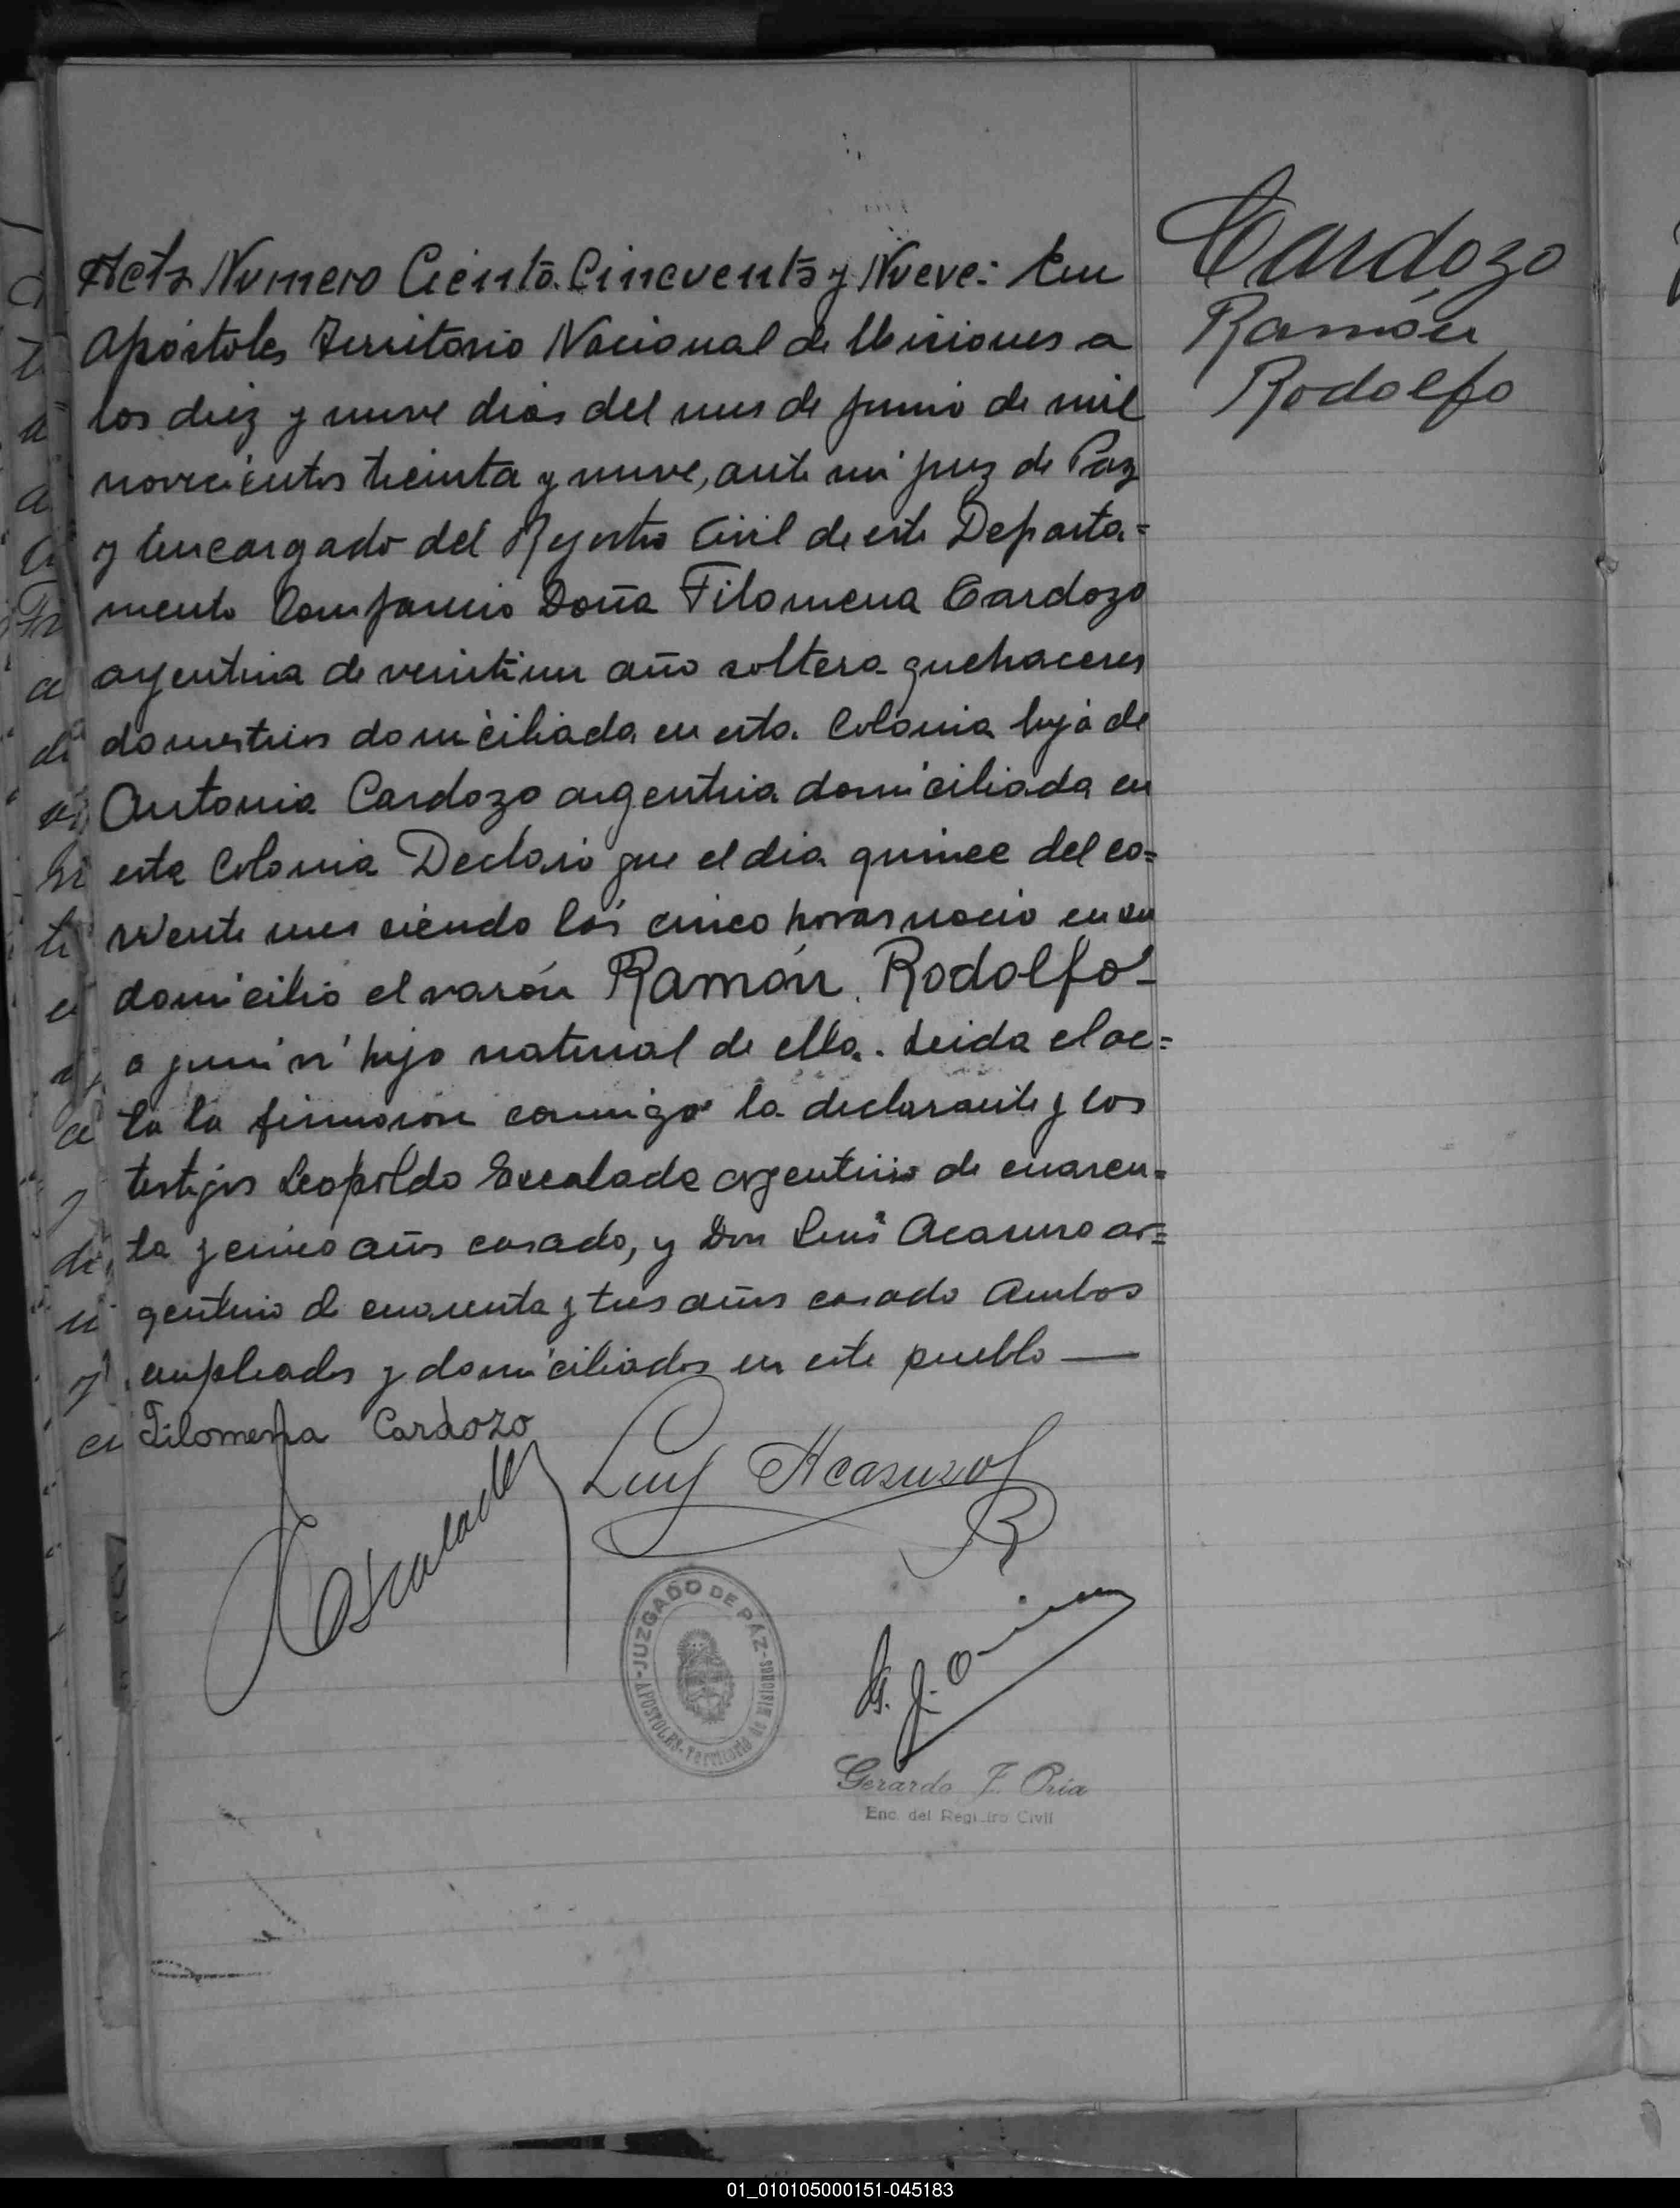 Acta Numero Ciento Cincuenta y Nueve: En
Apóstoles Territorio Nacional de Misiones a
los diez y nueve dias del mes de junio de mil
novecientos treinta y nueve, ante mi juez de Paz
y Encargado del Rejistro Civil de este Departa=
mento Compareció Doña Filomena Cardozo
argentina de veintiun año soltera quehaceres
domesticos domiciliada en esta Colonia hija de
Antonia Cardozo argentina domiciliada en
esta Colonia Declaró que el dia quince del co=
rriente mes siendo las cinco horas nació en su
domicilio el varón Ramón Rodolfo-
hijo natural de ella. Leida el ac=
ta la firmaron conmigo la declarante y los
testigos Leopoldo Escalada argentino de cuaren=
ta y cinco años casado, y Don Luis Acasuso ar=
gentino de cuarenta y tres años casado Ambos
empleados y domiciliados en este pueblo —
Cardozo
Ramón
Rodolfo
Filomena Cardozo
Escalada
Luis Acasuso
JUZGADO DE PAZ
APOSTOLES - Territorio de Misiones
G. J. Oria
Gerardo J. Oria
Enc. del Registro Civil
01_010105000151-045183